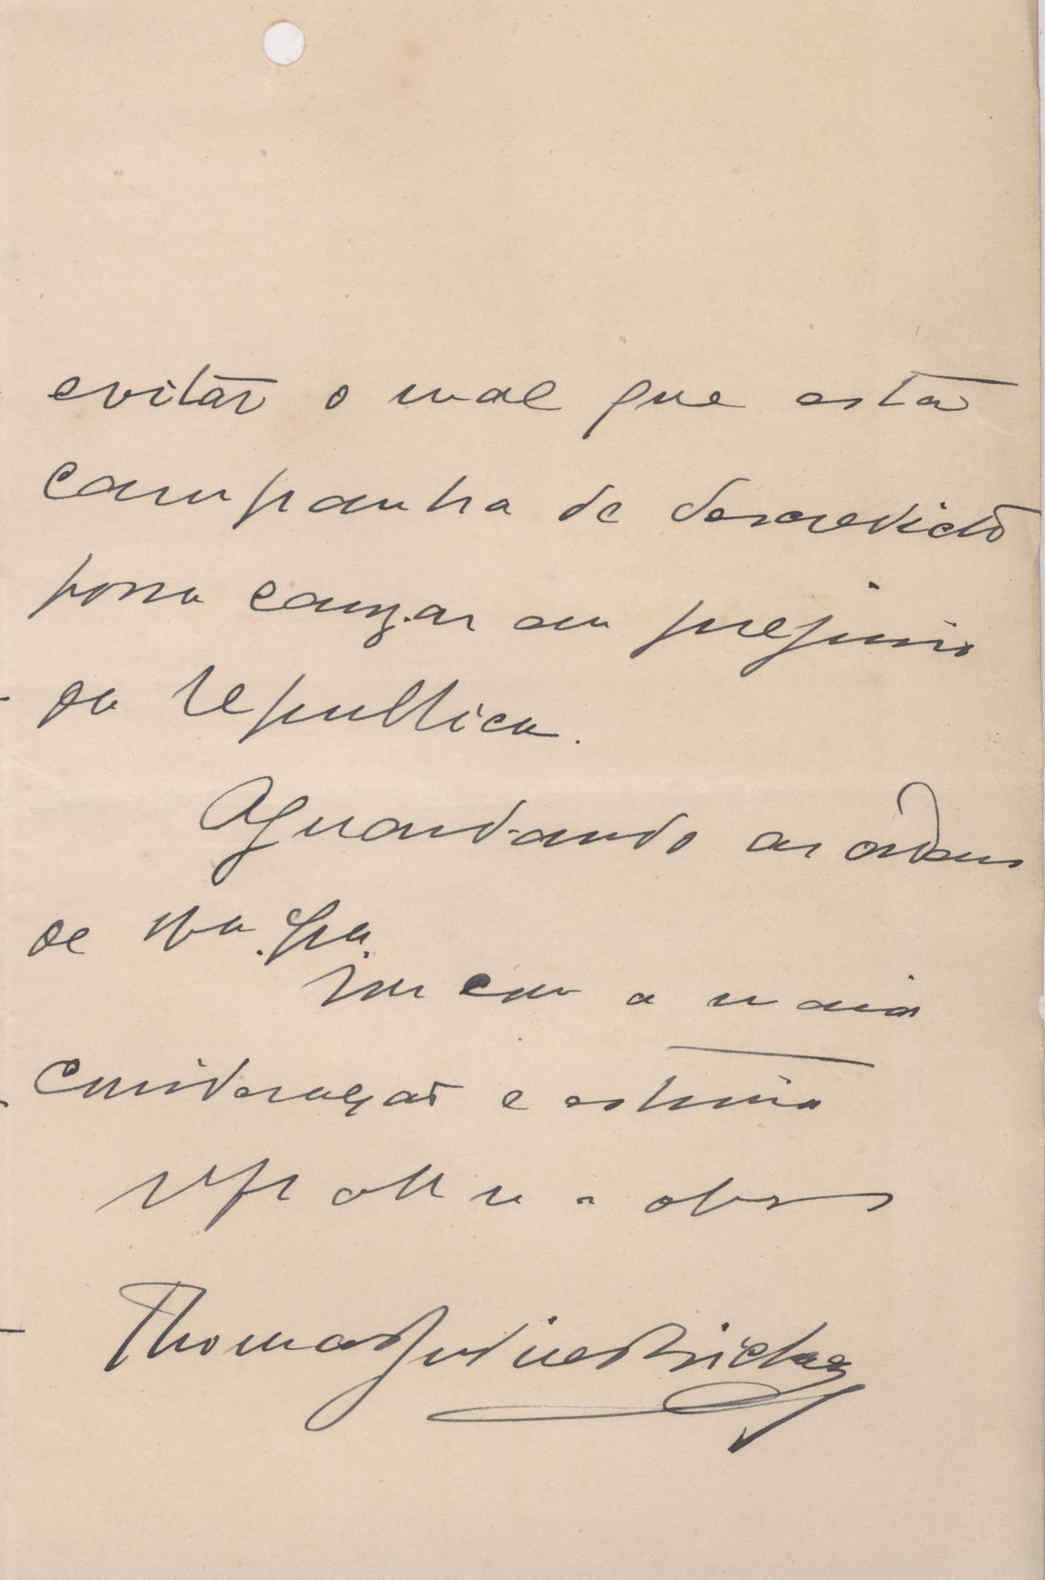 evitar o mal que esta
campanha de descredicto
possa cauzar em prejuiso
da republica.
Aguardando as ordens
de Va. Sa.
sou com a maior
consideração e estima
attº obr
Thomas